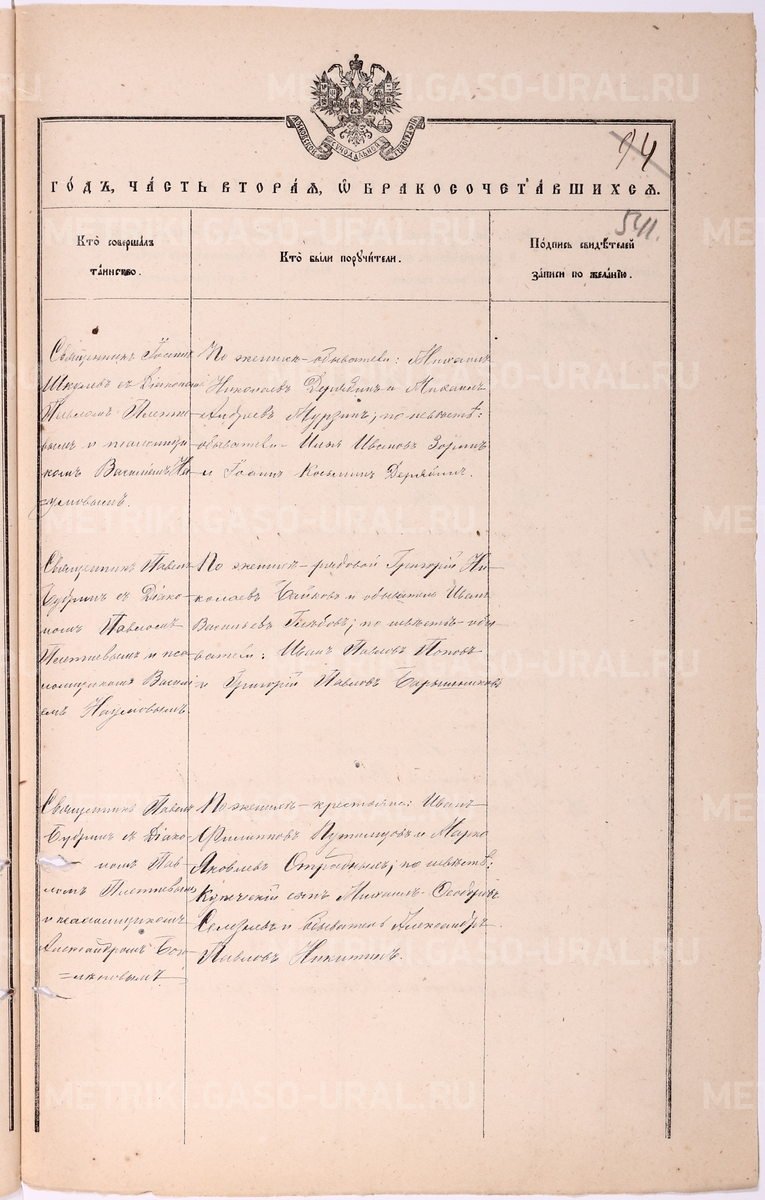 94
ГОДЪ, ЧАСТЬ ВТОРАЯ, Ѡ БРАКОСОЧЕТАВШИХСЯ.
541.
Кто совершалъ таинство.
Кто были поручители.
Подпись свидѣтелей записи по желанію.
Священникъ Іоаннъ
съ Діакономъ
Павломъ Плетне-
вымъ и псаломщи-
комъ Василіемъ На-
умовымъ.
По женихѣ – обыватели: Михаилъ
Николаевъ Дерябинъ и Михаилъ
Андреевъ Мурзинъ; по невѣстѣ:
обыватели Илья Ивановъ Зоринъ
и Іоаннъ Косьминъ Дерябинъ.
Священникъ Павелъ
Бубринъ съ Діако-
номъ Павломъ
Плетневымъ и пса-
ломщикомъ Васили-
емъ Наумовымъ.
По женихѣ – рядовой Григорій Ни-
колаевъ и обыватель Иванъ
Васильевъ Глѣбовъ; по невѣстѣ обы-
ватели: Иванъ Павловъ Поповъ
и Григорій Павловъ Барышниковъ
Священникъ Павелъ
Бубринъ съ Діако-
номъ Пав-
ломъ Плетневымъ
и псаломщикомъ
Александромъ
По женихѣ – крестьяне: Иванъ
Филипповъ и Марко
Яковлевъ; по невѣстѣ:
Купеческій сынъ Михаилъ Ѳеодоровъ
и обыватель Александръ
Павловъ Никитинъ.
METRIKI.GASO-URAL.RU